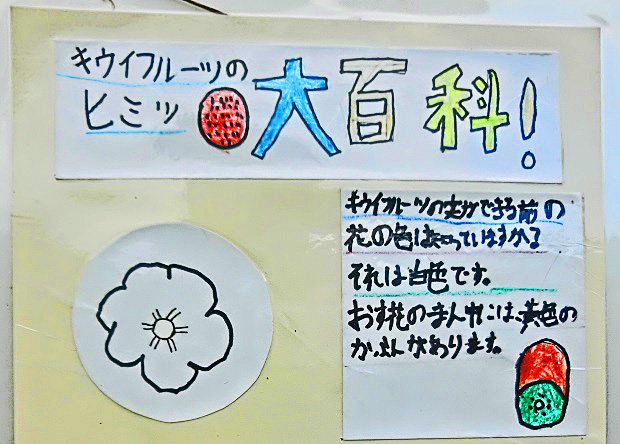 キウイフルーツの
ヒミツ
大百科!
キウイフルーツの実ができる前の
花の色は知っていますか?
それは白色です。
おす花のまん中には、黄色の
かふんがあります。